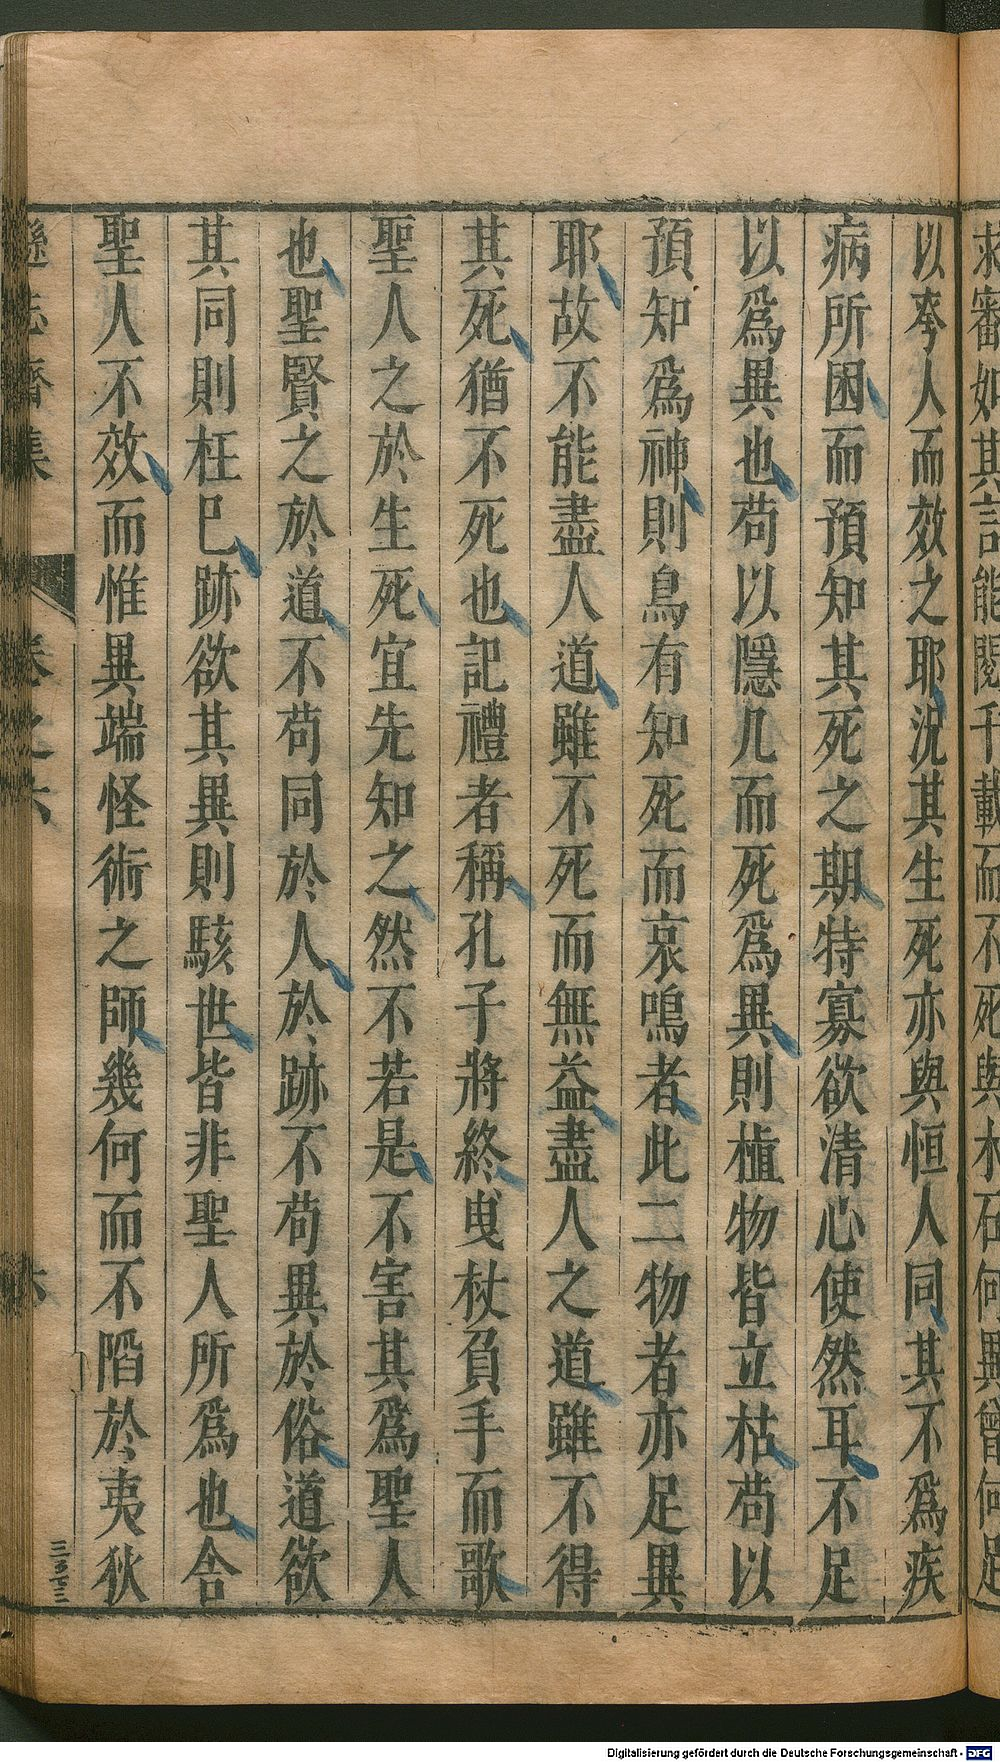 求審如其言能閱千載而不死與木石何異曾何足
以奪人而效之耶況其生死亦與恒人同其不爲疾
病所困而預知其死之期特寡欲清心使然耳不足
以爲異也苟以隱几而死爲異則植物皆立枯苟以
預知爲神則鳥有知死而哀鳴者此二物者亦足異
耶故不能盡人道雖不死而無益盡人之道雖不得
其死猶不死也記禮者稱孔子將終曳杖負手而歌
聖人之於生死宜先知之然不若是不害其爲聖人
也聖賢之於道不苟同於人於跡不苟異於俗道欲
其同則枉巳跡欲其異則駭世皆非聖人所爲也舍
聖人不效而惟異端怪術之師幾何而不陷於夷狄
遜志齋集 卷之六 六
Digitalisierung gefördert durch die Deutsche Forschungsgemeinschaft - DFG